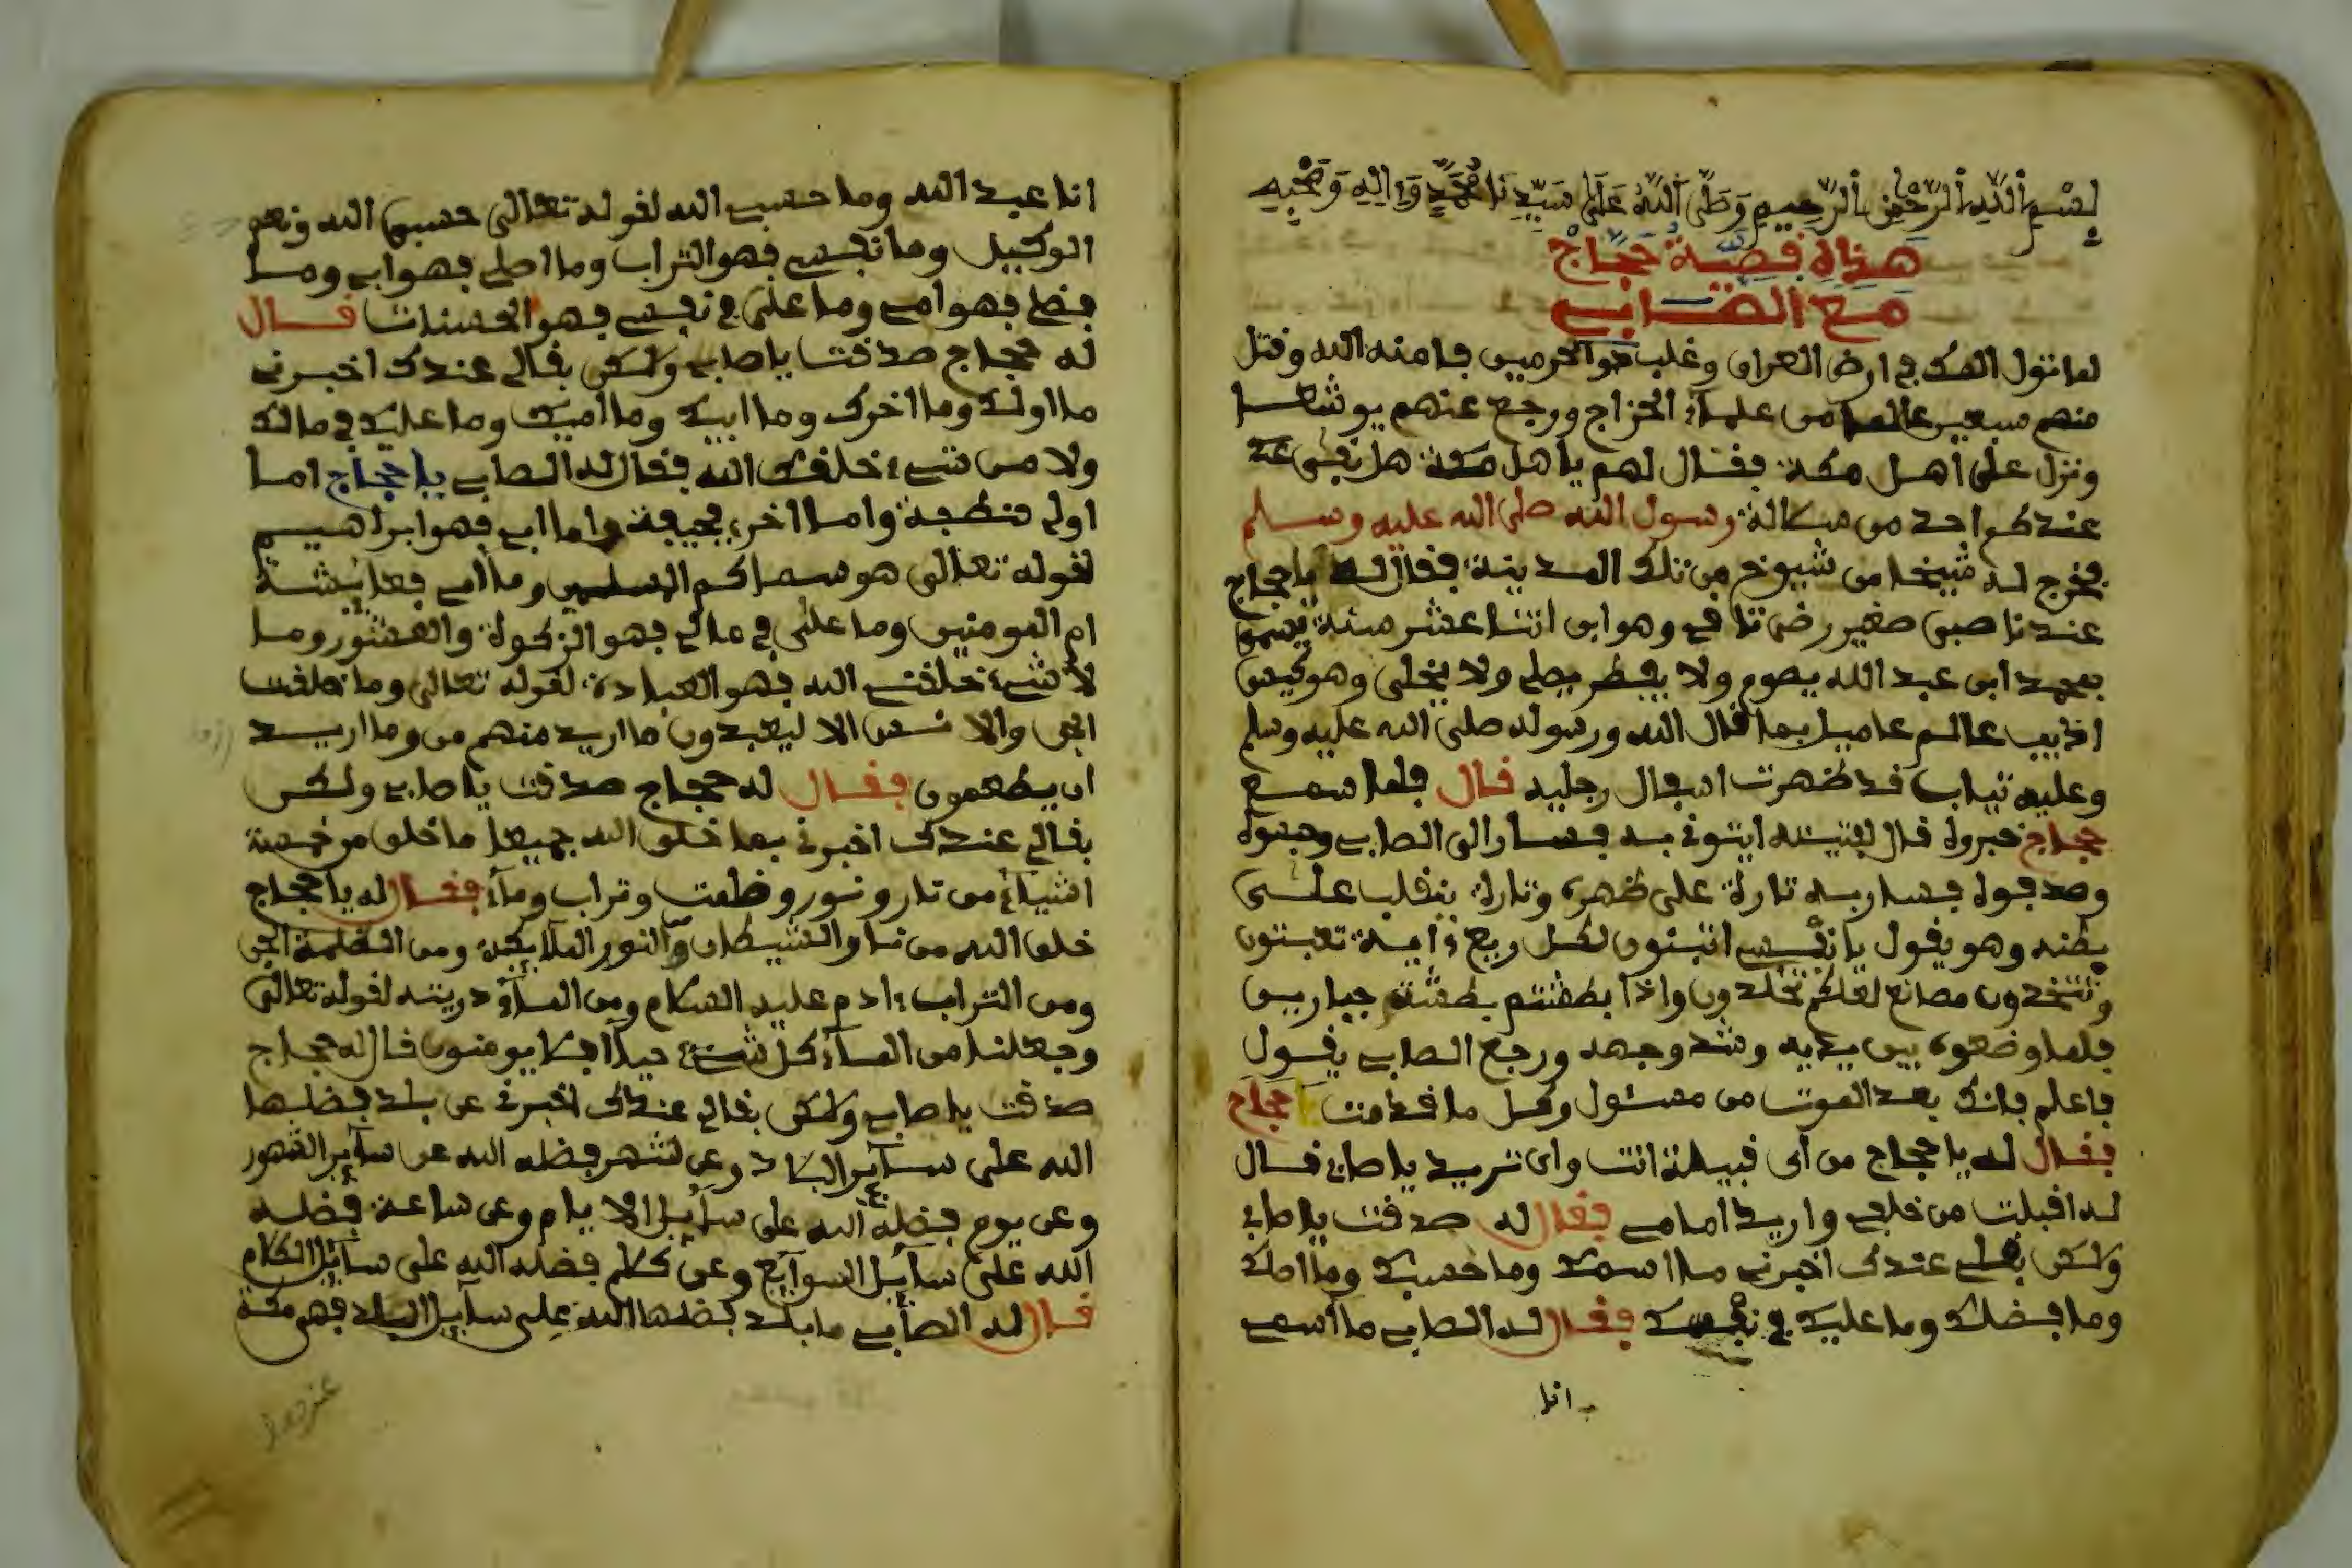 بِسْمِ اللَّهِ الرَّحْمَنِ الرَّحِيمِ وَصَلَّى اللَّهُ عَلَى سَيِّدِنَا مُحَمَّدٍ وَءَالِهِ وَصَحْبِهِ
هذه قصية حجاج
مع الصابي
لما تول الملك في ارض العراق وغلب الحرميين فامنه الله وقتل
منهم سبعين عالما من علماء الخزاج ورجع عنهم
ونزل على اهل مكة فقال لهم ياهل مكة هل بقى
عندكم احد من سلالة رسول الله صلى الله عليه وسلم
فخرج له شيخا من شيوخ من تلك المدينة فقال له ياحجاج
عندنا صبي صغير وهو ابن اثنا عشر سنة
بمحمد ابن عبد الله يصوم ولا يفطر يصلي ولا يخلى وهو
عالم عاميل بما قال الله ورسوله صلى الله عليه وسلم
وعليه تياب قد ظهرت رجليه قال فلما سمع
حجاج خبروه قال ايتوني به فسار الى الصابي
فسار به تارة على ظهره وتارة ينقلب على
بطنه وهو يقول يا نفسي اتبنون لكل ريع ءاية تعبثون
وتتخذون مصانع لعلكم تخلدون واذا بطشتم بطشتم جبارين
فلما وضعوه بين يديه وشد وجهه ورجع الصابي يقول
فاعلم فانك بعد الموت من مسئول وكل ما قدمت حجاج
فقال له يا حجاج من اى قبيلة انت واى تريد يا صابي قال
له اقبلت من خلفي واريد امامي فقال له صدقت يا صابي
ولكن بقلي عندك اخبرني ما اسمك وما حسبك وما اصلك
وما فضلك وما عليك في نفسك فقال له الصابي ما اسمي
انا
انا عبد الله وما حسبي الله لقوله تعالى حسبي الله ونعم
الوكيل وما نفسي فهو التراب وما اصلي فهو ابي وما
فضلي فهو امي وما على في نفسي فهو الحسنات قال
له حجاج صدقت يا صابي ولكن بقالي عندك اخبرني
ما اولك وما اخرك وما ابيك وما اميك وما عليك في مالك
ولا من شيء خلفك الله فقال له الصابي يا حجاج اما
اولي فنطجة واما اخري فجيفة واما ابي فهو ابراهيم
لقوله تعالى هو سماكم المسلمين وما امي فعايشة
ام المومنين وما على في مالي فهو الزكوة والعشور وما
لا شيء خلقني الله فهو العبادة لقوله تعالى وما خلقت
الجن والا نس الا ليعبدون ما اريد منهم من وما اريد
ان يطعمون فقال له حجاج صدقت يا صابي ولكن
بقالي عندك اخبرني بما خلق الله جميعا ما خلق من خمسة
اشياء من نار ونور وظلمت وتراب وماء فقال له يا حجاج
خلق الله من نار الشيطان والنور الملايكة ومن الظلمة الجن
ومن التراب ءادم عليه السلام ومن الماء ذريته لقوله تعالى
وجعلنا من الماء كل شيء حيا افلا يومنون قال له حجاج
صدقت يا صابي ولكن بقالي عندك اخبرني عن بلد فضلها
الله على ساير البلاد وعن شهر فضله الله عن ساير الشهور
وعن يوم فضله الله على ساير الايام وعن ساعة فضله
الله على ساير السوايع وعن كلام فضله الله على ساير الكلام
قال له الصابي ما بلد فضلها الله على ساير البلد فهو مكة